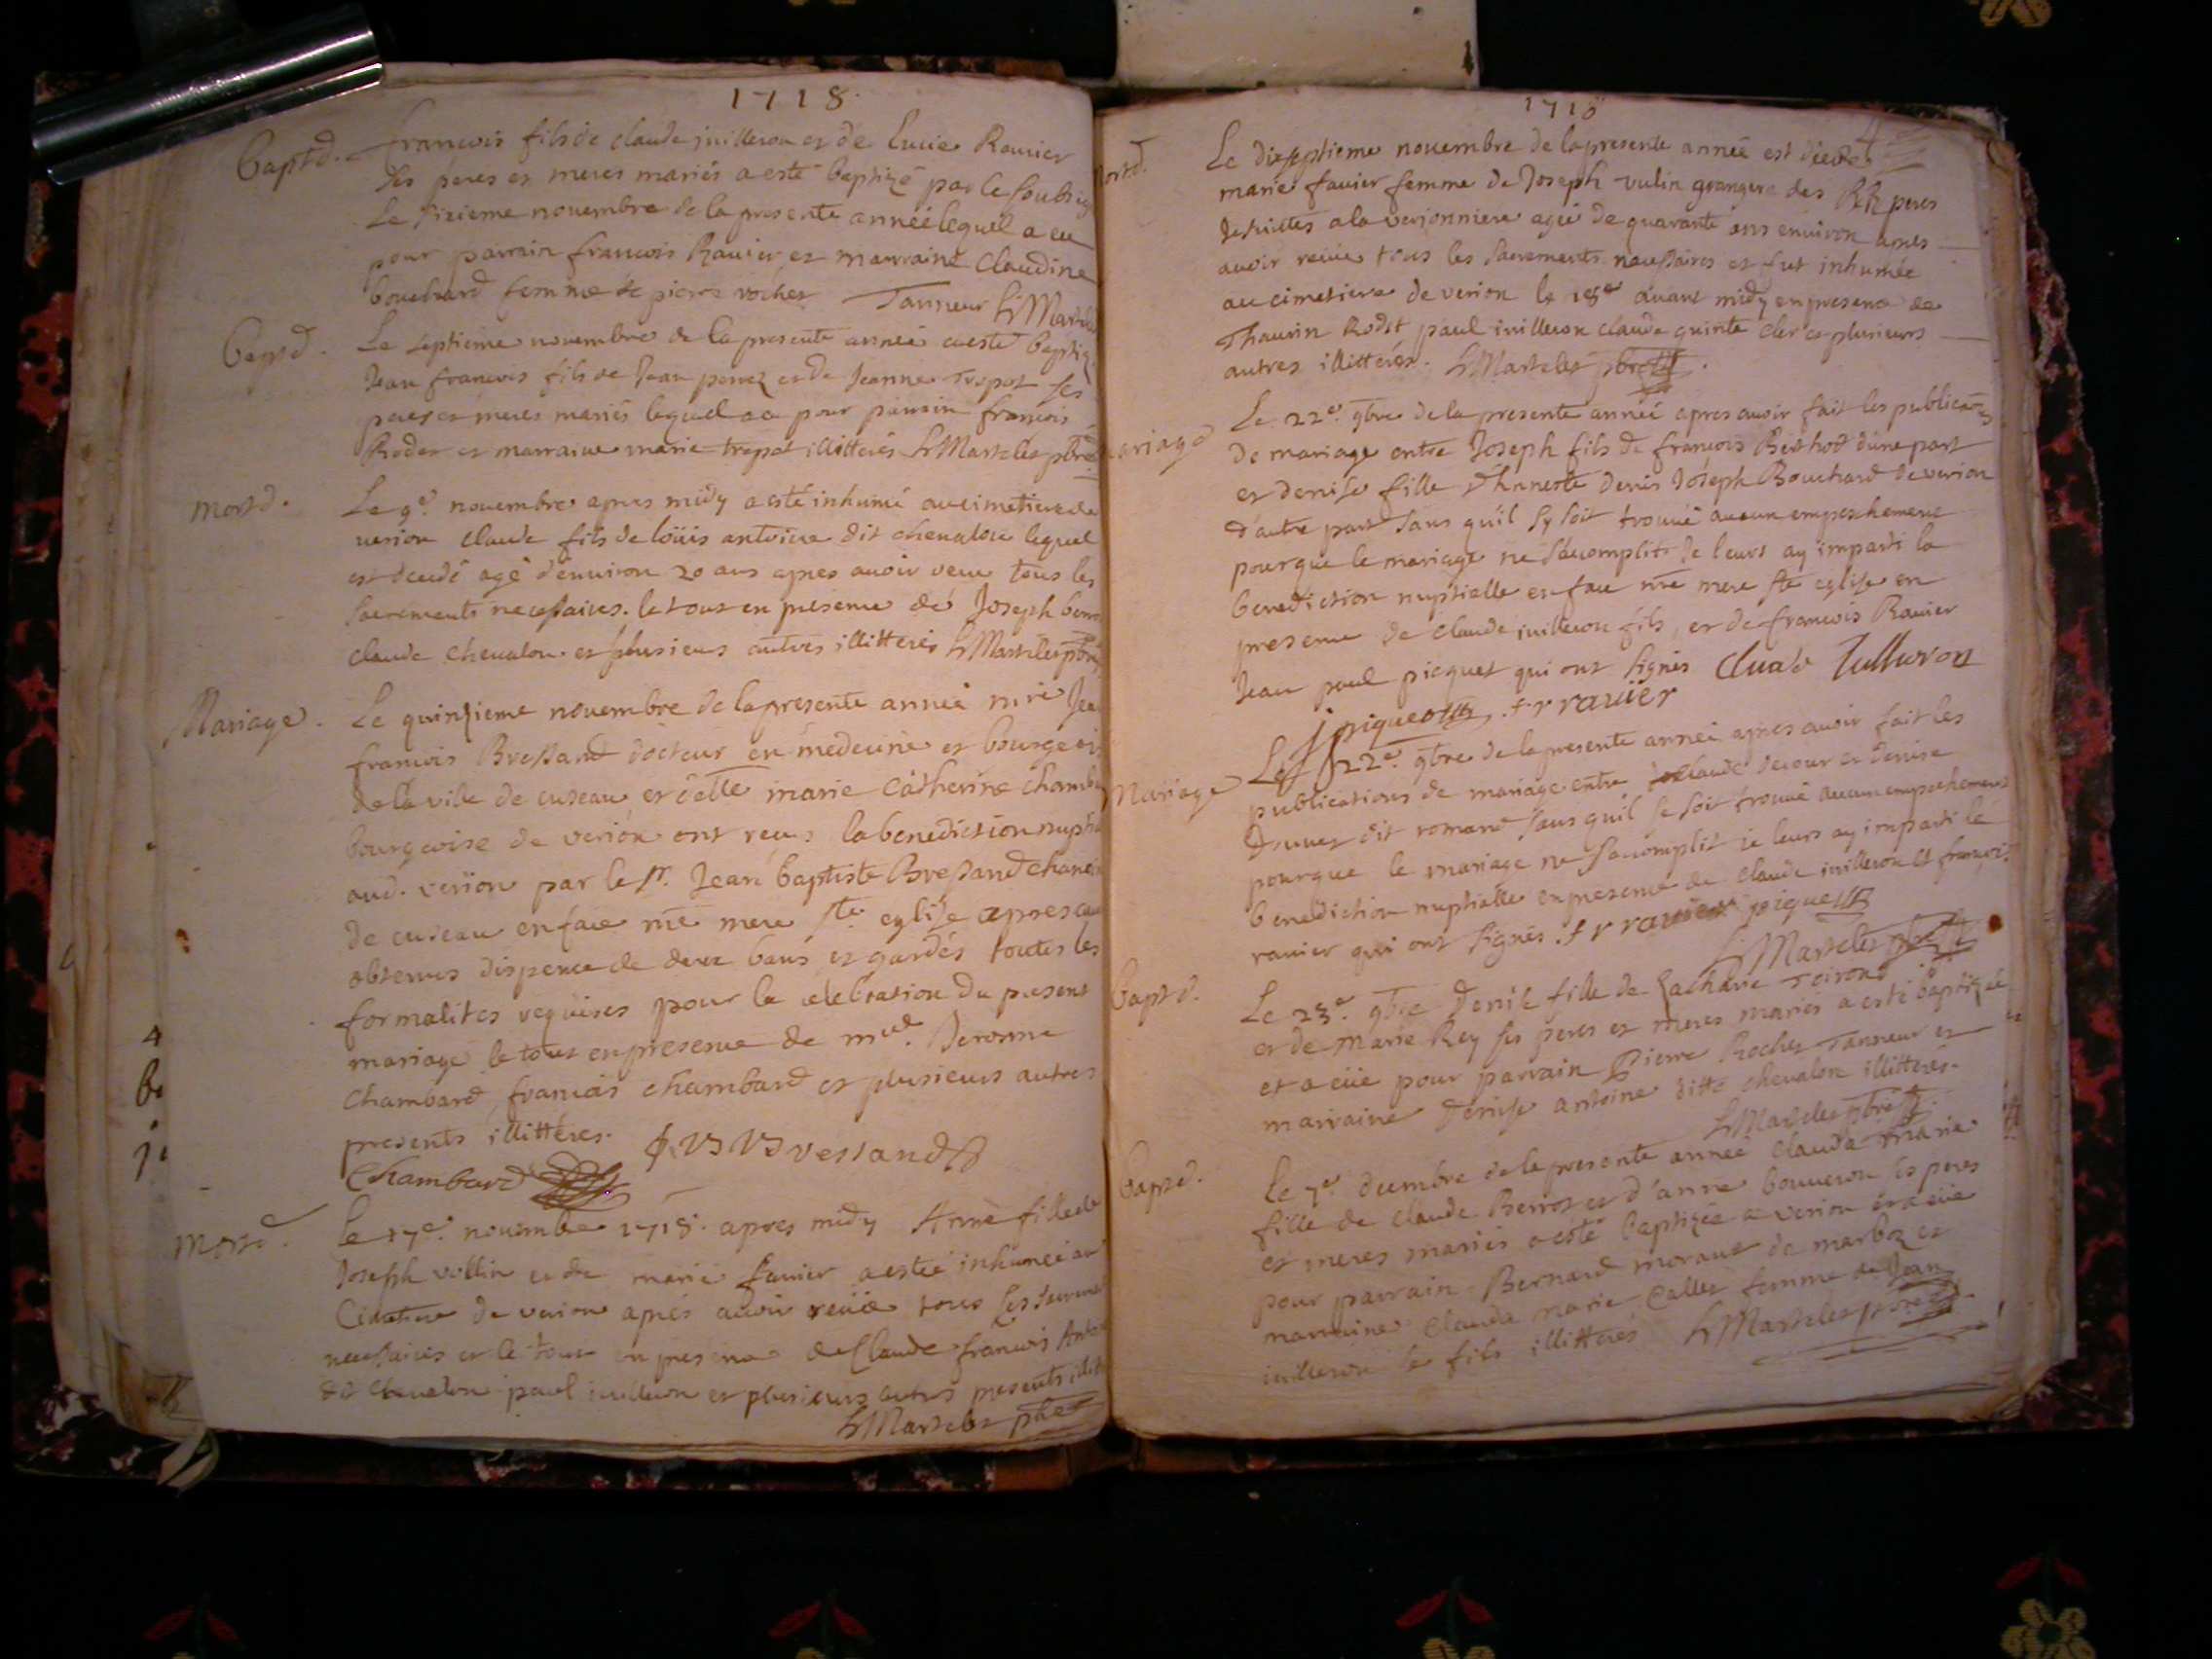 1718.
Baptd. francois fils de claude juilleron et de Lucie Rauier
ses peres et meres mariés a esté baptizé par le soubsig
Le sixieme nouembre de la presente année lequel a eu
pour parrain francois Rauier et marraine Claudine
bouchard femme de pierre rochet Tanneur Martelet
Baptd. Le septieme nouembre de la presente année a esté baptiz
Jean francois fils de Jean perrez et de Jeanne Tropot ses
peres et meres mariés lequel a eu pour parrain francois
Rodet et marraine marie tropot illitterés Martelet pbre
mortd. Le 9e nouembre apres midy a esté inhumé au cimetiere de
verion claude fils de loüis antoine dit cheualon lequel
est decedé agé d'enuiron 20 ans apres auoir receu tous les
sacrements necessaires. le tout en presence de Joseph
claude cheualon et plusieurs autres illitterés Martelet pbre
Mariage. Le quinzieme nouembre de la presente année mre Jea
francois Bressand docteur en medecine et bourgeois
de la ville de cuseau et delle marie Catherine chamb
bourgeoise de verion ont receus la benediction nuptia
aud. verion par le sr. Jean baptiste Bressand chanoin
de cuseau en face nre mere ste. eglise apres
obtenus dispence de deux bans et gardés toutes les
formalites requises pour la celebration du present
mariage le tout en presence de Jerosme
Chambard, francois chambard et plusieurs autres
presents illittéres. Bressand
Chambard
Mortd. le 17e. nouembre 1718. apres midy Anne fille de
Joseph vullin et de marie fauier a esté inhumée au
Cimetiere de verion apres auoir receüe tous les sacreme
necessaires et le tout en presence de Claude francois Anto
dit cheualon paul iuilleron et plusieurs autres presents illit
Martelet pbre
1718
4
mortd. Le dixseptieme nouembre de la presente année est decedée
marie fauier femme de Joseph vulin grangere des RR peres
Jesuittes a la verjonniere agée de quarante ans enuiron apres
auoir receue tous les sacrements necessaires et fut inhumée
au cimetiere de verion le 18e auant midy en presence de
Thaurin Rodet paul iuilleron claude quinte clerc et plusieurs
autres illittérés. Martelet pbre
Mariage Le 22e. 9bre de la presente année apres auoir fait les publicatons
de mariage entre Joseph fils de francois Berthod d'une part
et denise fille d'hneste denis Joseph Bouchard de verion
d'autre part sans qu'il sy soit trouué aucun empeschement
pour que le mariage ne s'accomplit Je leurs ay imparti la
benediction nuptialle en face nre mere ste eglise en
presence de Claude iuilleron fils, et de francois Rauier
Jean paul picquet qui ont signés Cluade Iulluron
J piquet fr rauier
Mariage Le 22e. 9bre de la presente année apres auoir fait les
publications de mariage entre claude decour et denise
Druuet dit romand sans quil se soit trouué aucun empeschement
pourque le mariage ne s'accomplit ie leurs ay imparti la
benediction nuptialle en presence de claude iuilleron et françois
rauier qui ont signés. fr rauier piquet
Martelet pbre
Baptd. Le 23e. 9bre denise fille de Zacharie Toirond
et de Marie Rey ses peres et meres mariés a esté baptizée
et a eüe pour parrain Pierre Rochet Tanneur et
marraine denise antoine ditte chevalon illitteres.
Martelet pbre
Baptd. le 7e. decembre de la presente année Claude Marie
fille de claude Berrot et d'anne bouueron ses peres
et meres mariés a esté baptizée a verion et a eüe
pour parrain Bernard moraut de marboz et
marraine Claude marie Callet femme de Jean
iuilleron le fils illitterés Martelet pbre